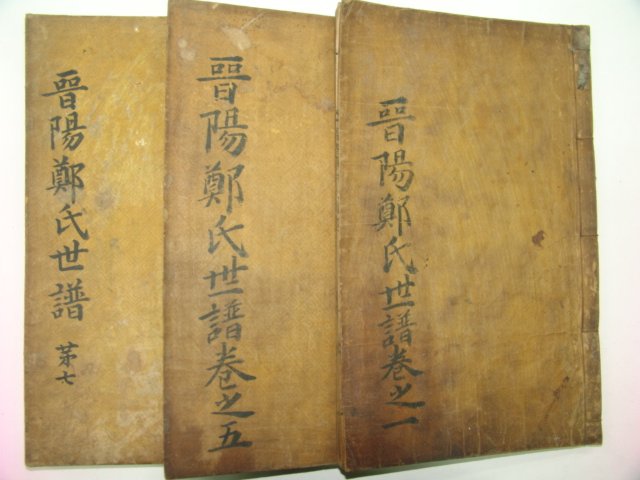 晋陽鄭氏世譜卷之一
晋陽鄭氏世譜卷之五
晋陽鄭氏世譜 苐七